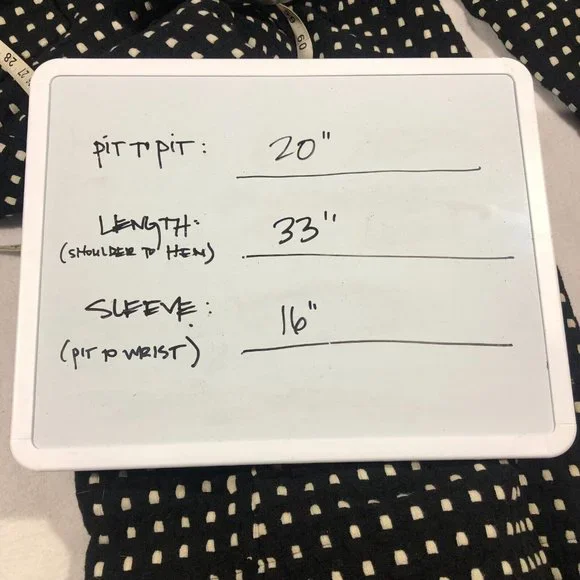 60
28
27
PIT TO PIT: 20"
LENGTH: 33"
(SHOULDER TO HEM)
SLEEVE: 16"
(PIT TO WRIST)